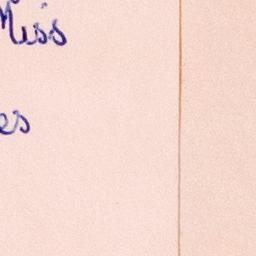 Miss
es